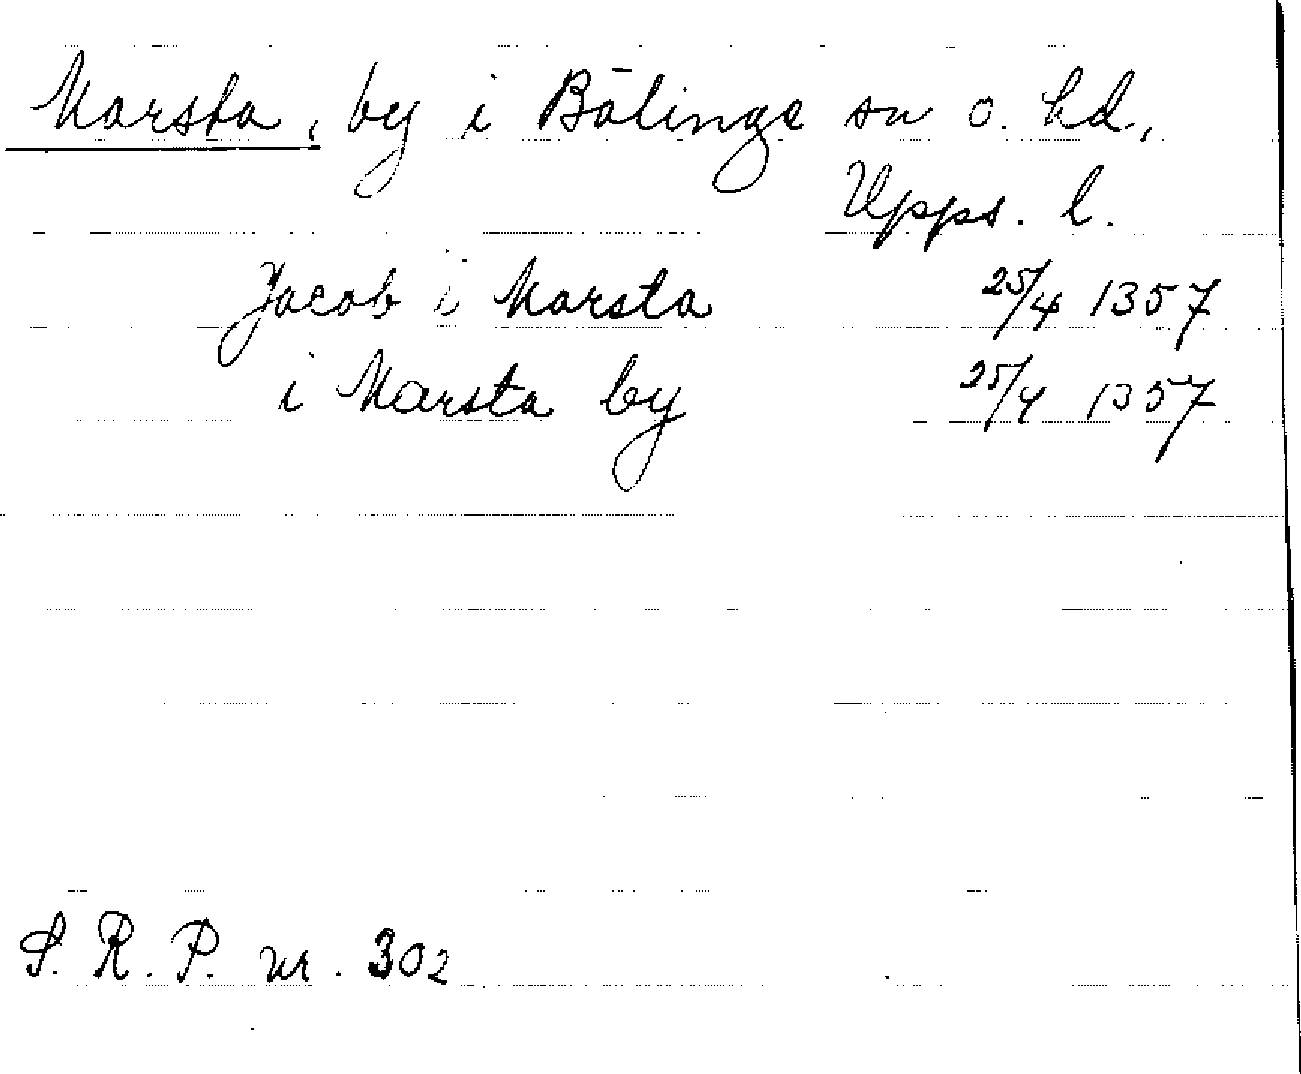 Marsta, by i Bälinge sn o. hd,
Upps. l.
Jacob i Marsta 25/4 1357
i Marsta by 25/4 1357
S. R. P. nr. 302